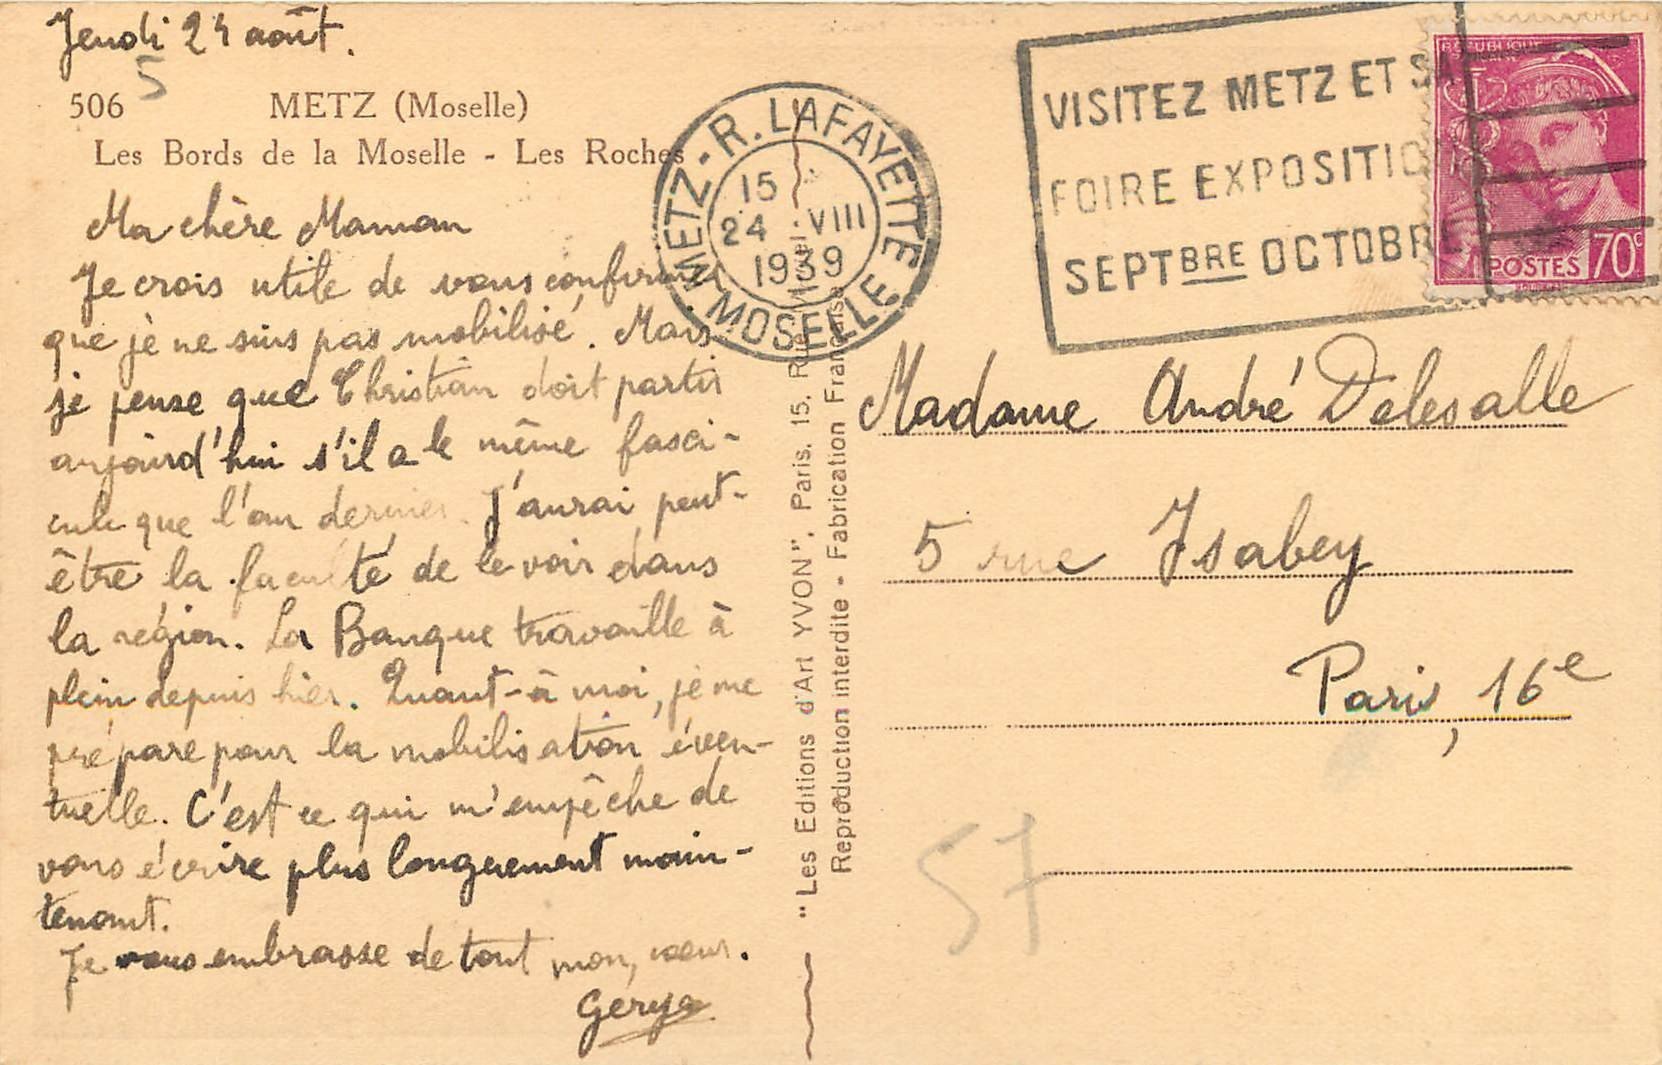 Jeudi 24 août.
5
506 METZ (Moselle)
Les Bords de la Moselle - Les Roches
Ma chère Maman
Je crois utile de vous confirmer
que je ne suis pas mobilisé. Mais
je pense que Christian doit partir
aujourd'hui s'il a le même fasci-
cule que l'an dernier. J'aurai peut-
être la faculté de le voir dans
la région. La Banque travaille à
plein depuis hier. Quant-à moi, je me
prépare pour la mobilisation éven-
tuelle. C'est ce qui m'empêche de
vous écrire plus longuement main-
tenant.
Je vous embrasse de tout mon cœur.
METZ - R. LAFAYETTE
15
24 VIII
1939
MOSELLE
VISITEZ METZ ET SA
FOIRE EXPOSITION
SEPTBRE OCTOBRE
POSTES 70c
"Les Editions d'Art YVON", Paris, 15, Rue
Reproduction interdite - Fabrication Française
Madame André Delesalle
5 rue Isabey
Paris, 16e
57